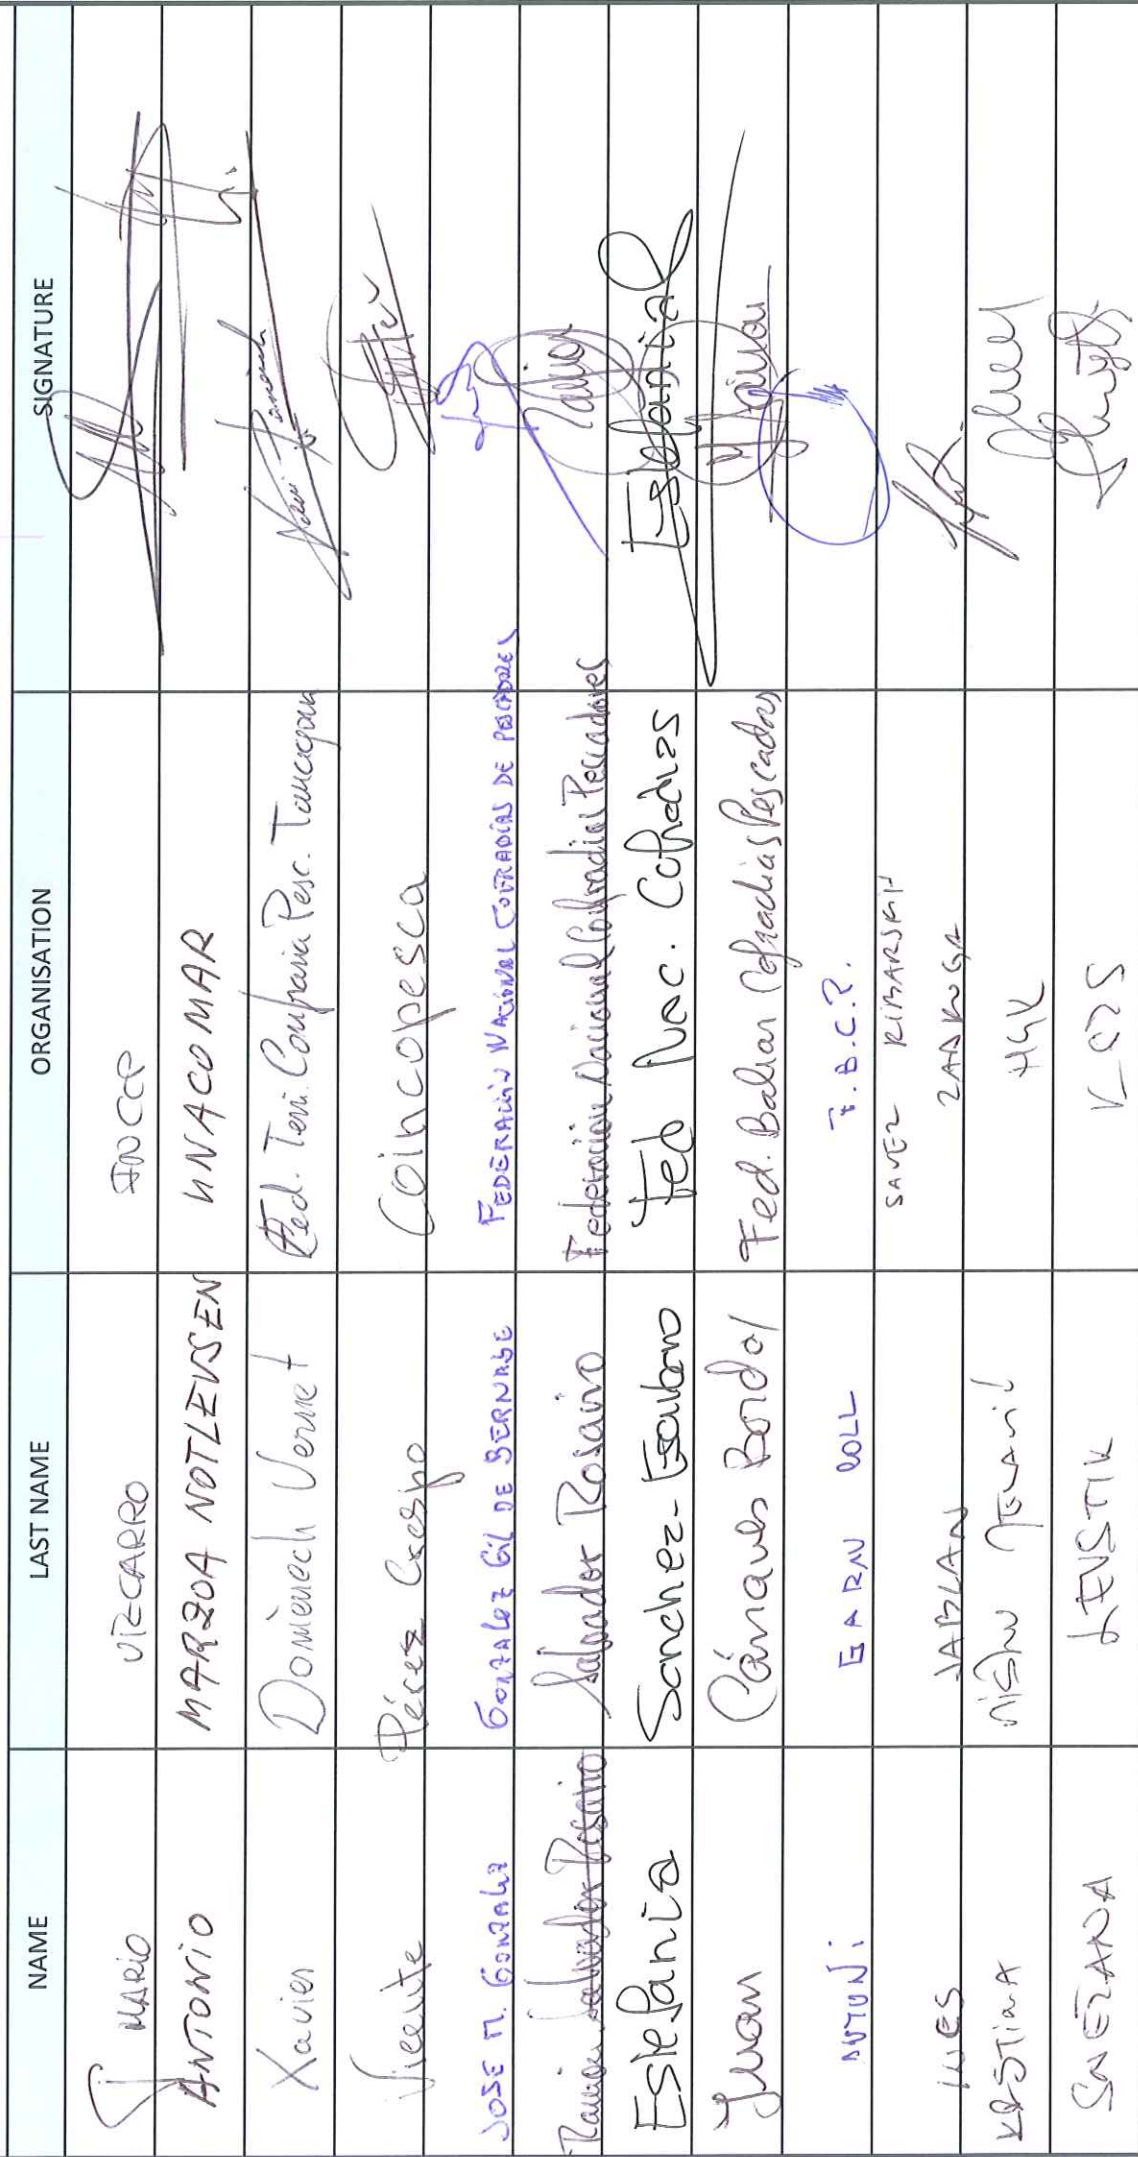 NAME LAST NAME ORGANISATION SIGNATURE
MARIO VIZCARRO
ANTONIO MARZOA NOTLEVSEN UNACOMAR
Xavier Domènech Vernet Fed. Terri. Confraria Pesc. Tarragona
Vicente Pérez Crespo Coincopesca
JOSE M. GONZALEZ GONZALEZ GIL DE BERNABE FEDERACIÓN NACIONAL COFRADÍAS DE PESCADORES
Ramón Salvador Rosario Salvador Rosario Federacion Nacional Cofradias Pescadores
Estefania Sanchez-Escribano Fed Nac. Cofradias Estefania
Juan Cánaves Bordoy Fed. Balear Cofradias Pescadores
ANTONI GARAU COLL F.B.C.P.
INES JABLAN SAVEZ RIBARSKIH
ZADRUGA
KRISTINA HGK
SNEŽANA LEVSTIK